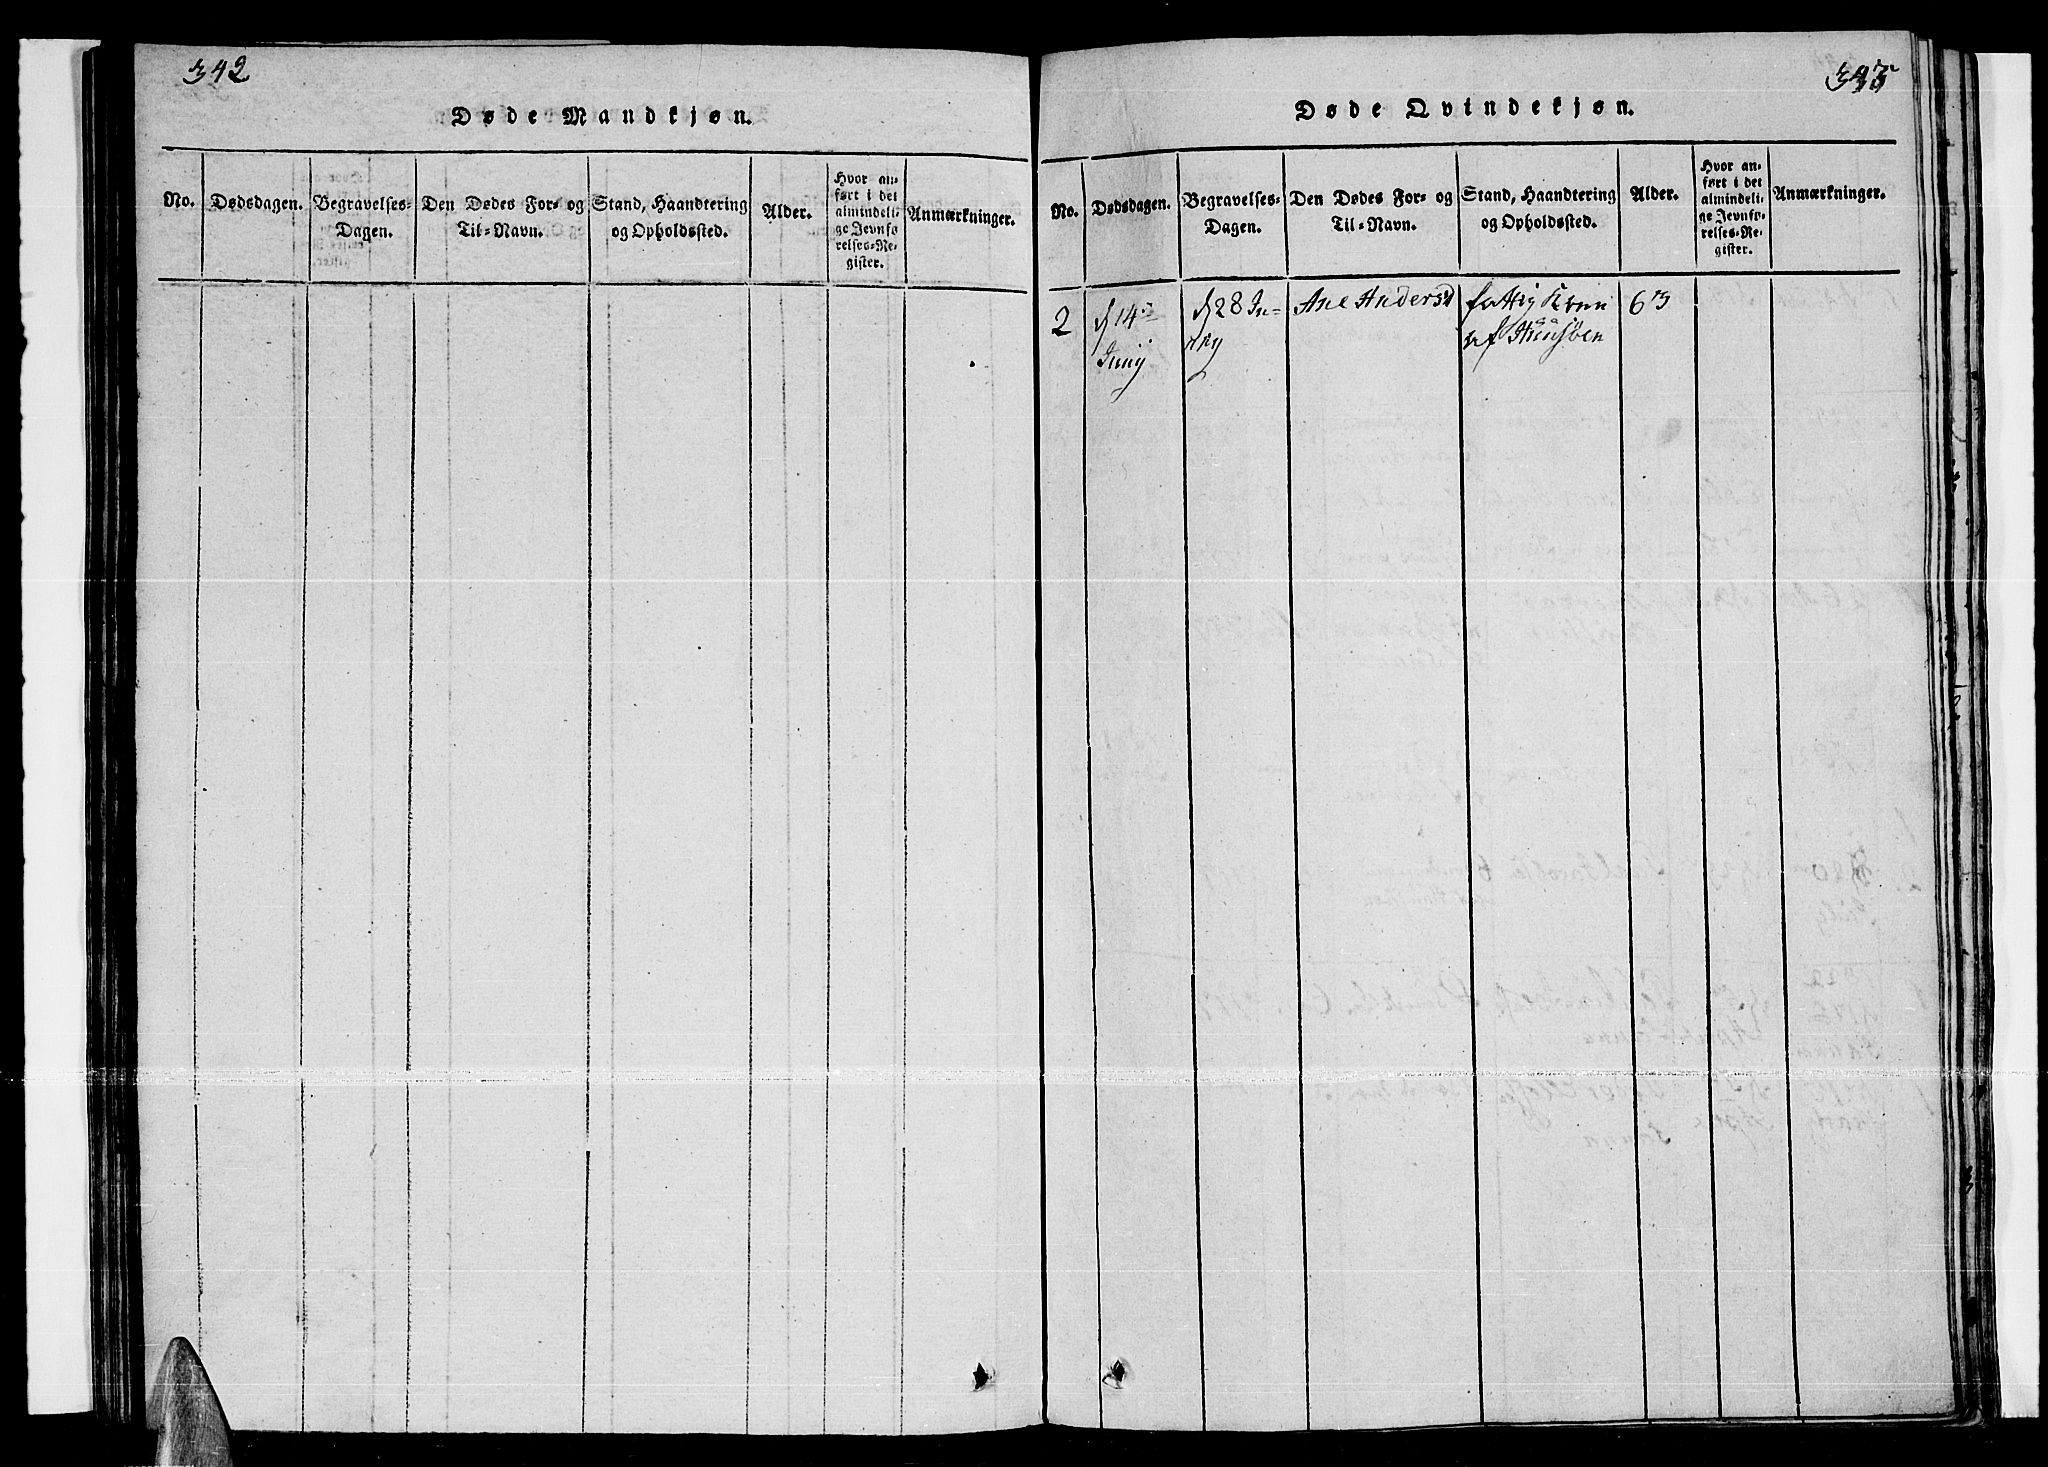 342
Døde Mandkjøn.
No.
Dødsdagen.
Begravelses-
Dagen.
Den Dødes For- og
Til-Navn.
Stand, Haandtering
og Opholdssted.
Alder.
Hvor an-
ført i det
almindeli-
ge Jevnfø
relses-Re-
gister.
Anmærkninger.
343
Døde Qvindekjøn.
No.
Dødsdagen.
Begravelses-
Dagen.
Den Dødes For- og
Til-Navn.
Stand, Haandtering
og Opholdssted.
Alder.
Hvor an-
ført i det
almindeli-
ge Jevnfø-
relses-Re-
gister.
Anmærkninger.
2
d 14
Junij
d 28 Ju-
nij
Ane Andersd
fattig Kone
af
63